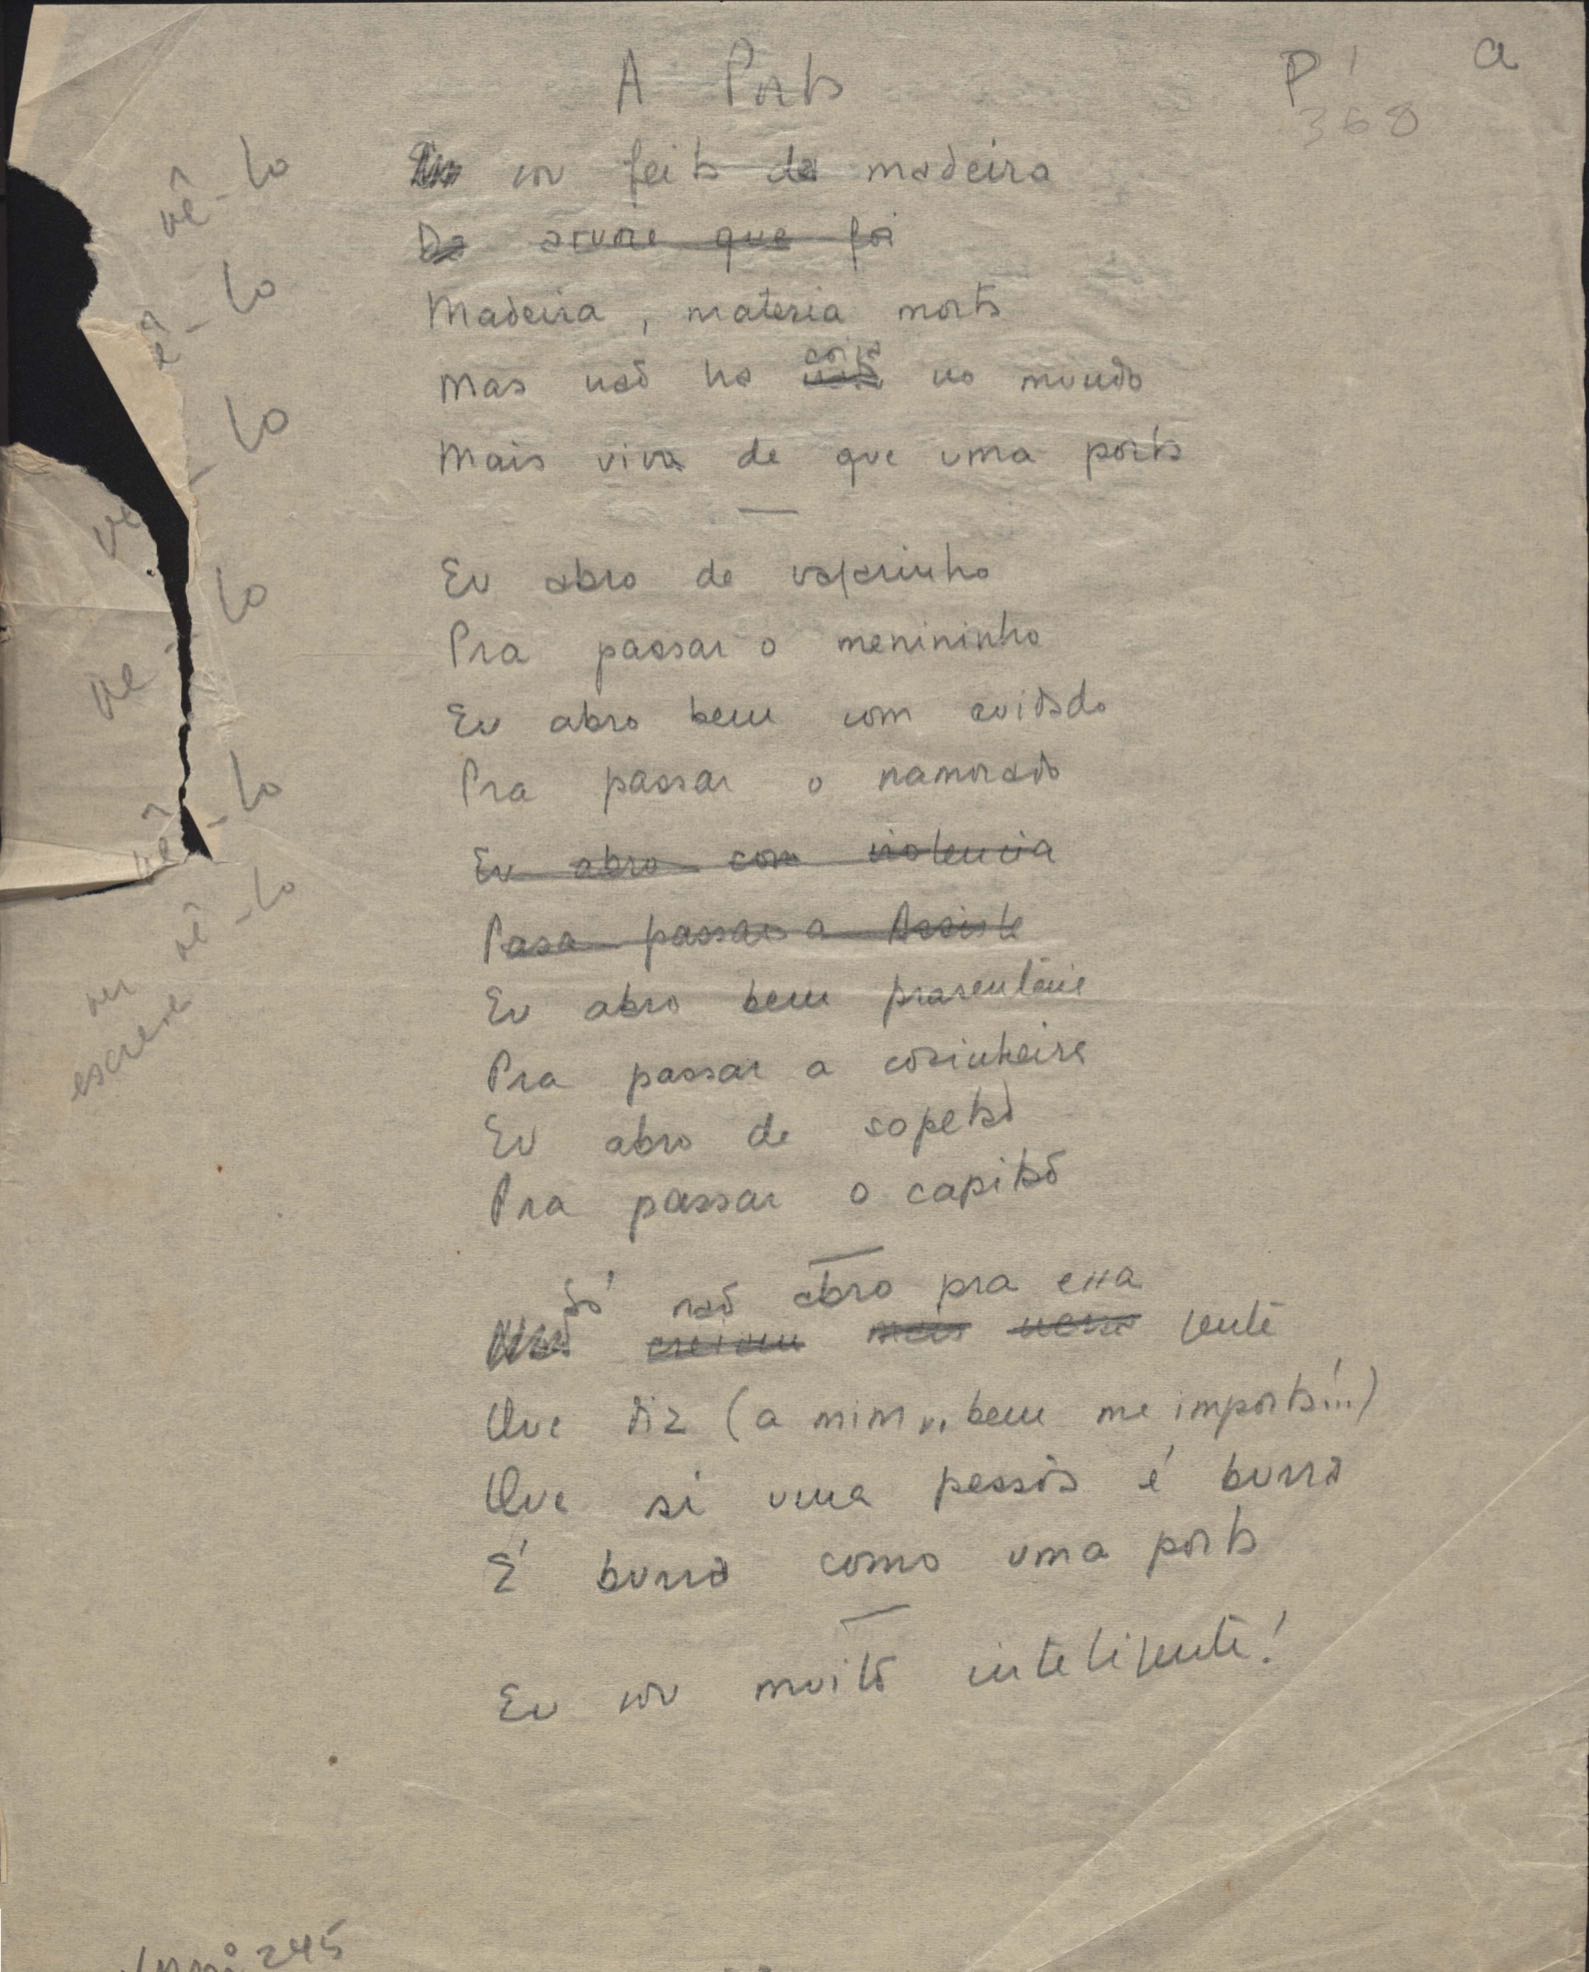 A Porta
P' a
368
sou feita de madeira
De arvore que foi
Madeira, materia morta
Mas não ha coisa no mundo
Mais viva de que uma porta
Eu abro de vagarinho
Pra passar o menininho
Eu abro bem com cuidado
Pra passar o namorado
Eu abro com violencia
Para passar a
Eu abro bem prasenteire
Pra passar a cosinheira
Eu abro de sopetão
Pra passar o capitão
Só não abro pra essa
Não mais nessa gente
Que diz (a mim, bem me importa!..)
Que si uma pessôa é burra
É burra como uma porta
Eu sou muito inteligente!
vê-lo
ê-lo
vê-lo
vê-lo
vê-lo
vê-lo
ver
escreve
245